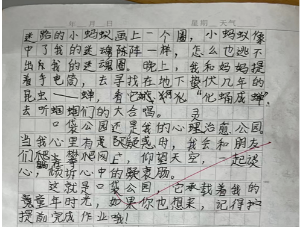 年 月 日 星期 天气
迷路的小蚂蚁画上一个圈，小蚂蚁像
中了我的迷魂阵阵一样，怎么也逃不
出我的迷魂圈。晚上，我和妈妈提
着手电筒，去寻找在地下蛰伏几年的
昆虫——蝉，看它“化蛹成蝉”，
去听蝈蝈们的大合唱。
口袋公园还是我的心灵治愈公园。
当我心里有是疑时，我会和朋友
们爬上爬网上，仰望天空，一起谈
心，倾诉心中的衷肠。
这就是口袋公园，它承载着我的
童年时光，如果你也想来，记得
提前完成作业哦！